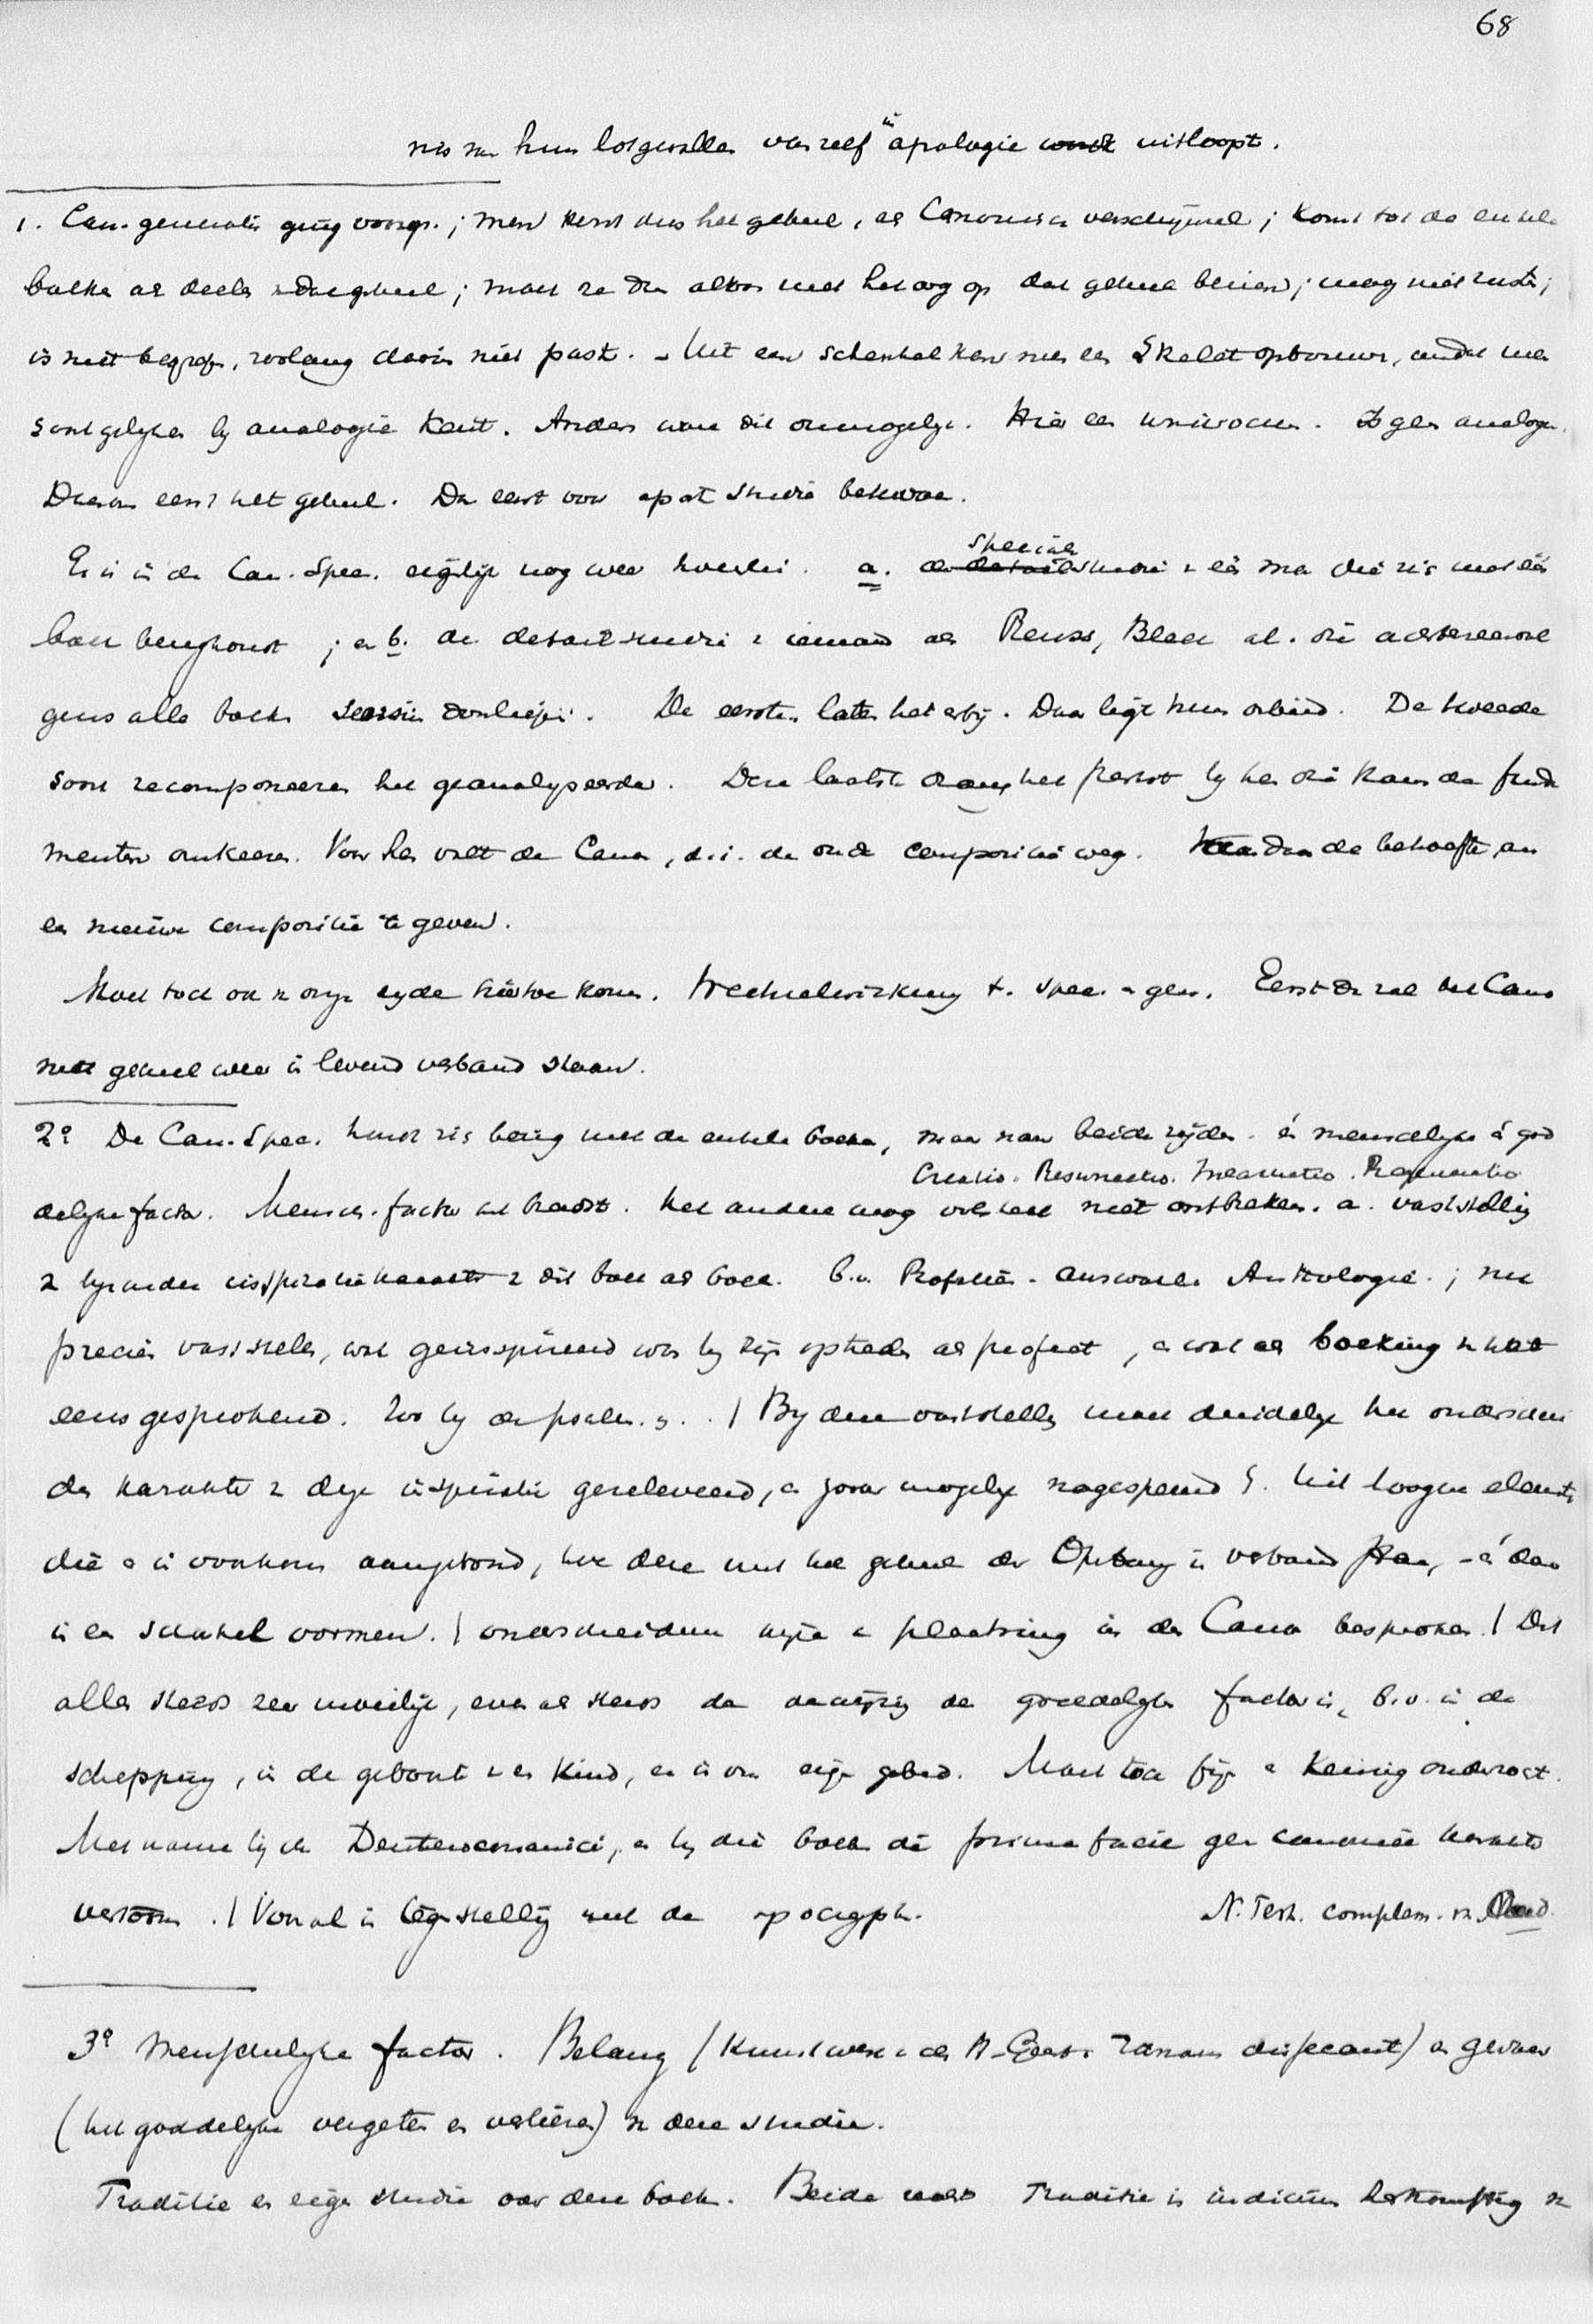 68
hun lotgevallen van zelf in apologie uitloopt.
1. Can. generalis ging voorop; men kent dus het geheel, als Canonisch verschijnsel; komt tot de enkele
boeken als deelen v dat geheel; moet ze dan altoos met het oog op dat geheel bezien; mag niet rusten;
is niet begrepen, zoolang daarin niet past. - Uit een schenkel kan men een Skelet opbouwen, omdat men
soortgelyken by analogie kent. Anders ware dit onmogelyk. Hier een univocum. Is geen analogon.
Daarom eerst het geheel. Dan eerst voor apart studie bekwaam.
Er is in de Can. Spec. eigenlijk nog weer tweeërlei. a. de speciale studie v één man die zich met één
boek bezighoudt; en b. de detailstudie v iemand als Reuss, Bleek al. die achtereenvolgens
alle boeken doorliepen. De eersten laten het erbij. Daar ligt hun arbeid. De tweede
soort recomponeeren het geanalyseerde. Deze laatste drang het sterkst by hen die Kans de funda
menten omkeeren. Voor hen valt de Canon, d.i. de oude compositie weg. dan de behoefte om
een nieuwe compositie te geven.
Moet toch ook v onze zyde hiertoe komen. Wechselwirkung t. spec. en gen. Eerst dan zal de Canon
geheel weer in levend verband staan.
2º De Can. Spec. houdt zich bezig met de enkele boeken, maar naar beide zijden. én menschelyke én god
Creatio. Resurrectio. Incarnatio.
delyke factor. Mensch. factor het breedst. Het andere mag volstrekt niet ontbreken. a. vaststelling
v byzonder inspiratiekarakter v dit boek als boek. B.v. Profetiën - Anthologie.; nu
precies vaststellen, wat geïnspireerd was by zijn optreden als profeet, en wat als boeking v het
eens gesprokene. Zoo by de psalmen. | By deze vaststelling moet duidelyk het onderschei
den karakter v deze inspiratie gereleveerd, en zoover mogelyk nagespeurd. Het hoogere element
die er in voorkomt aangetoond, hoe deze met het geheel der Openb. in verband staan, - én daar
in een schakel vormen. | onderscheidene wyze v plaatsing in den Canon besproken. | Dit
alles steeds zeer moeilijk, even als steeds de aanwijzing der goddelyke factor is, b.v. in de
schepping, in de geboorte v een kind, en in ons eigen gebed. Moet toch fijn en keurig onderzocht.
Met name bij de Deuterocanonici, en by die boeken die prima facie geen canoniek karakter
vertoonen. | Vooral in tegenstelling met de apocryph. N. Test. complem. v.
3º Menschelyke factor. Belang (Kunstwerk v den H. Geest) en gevaar
(het goddelyke vergeten en verliezen) v deze studie.
Traditie en eigen studie over deze boeken. Beide Traditie is indicium herkomstig v